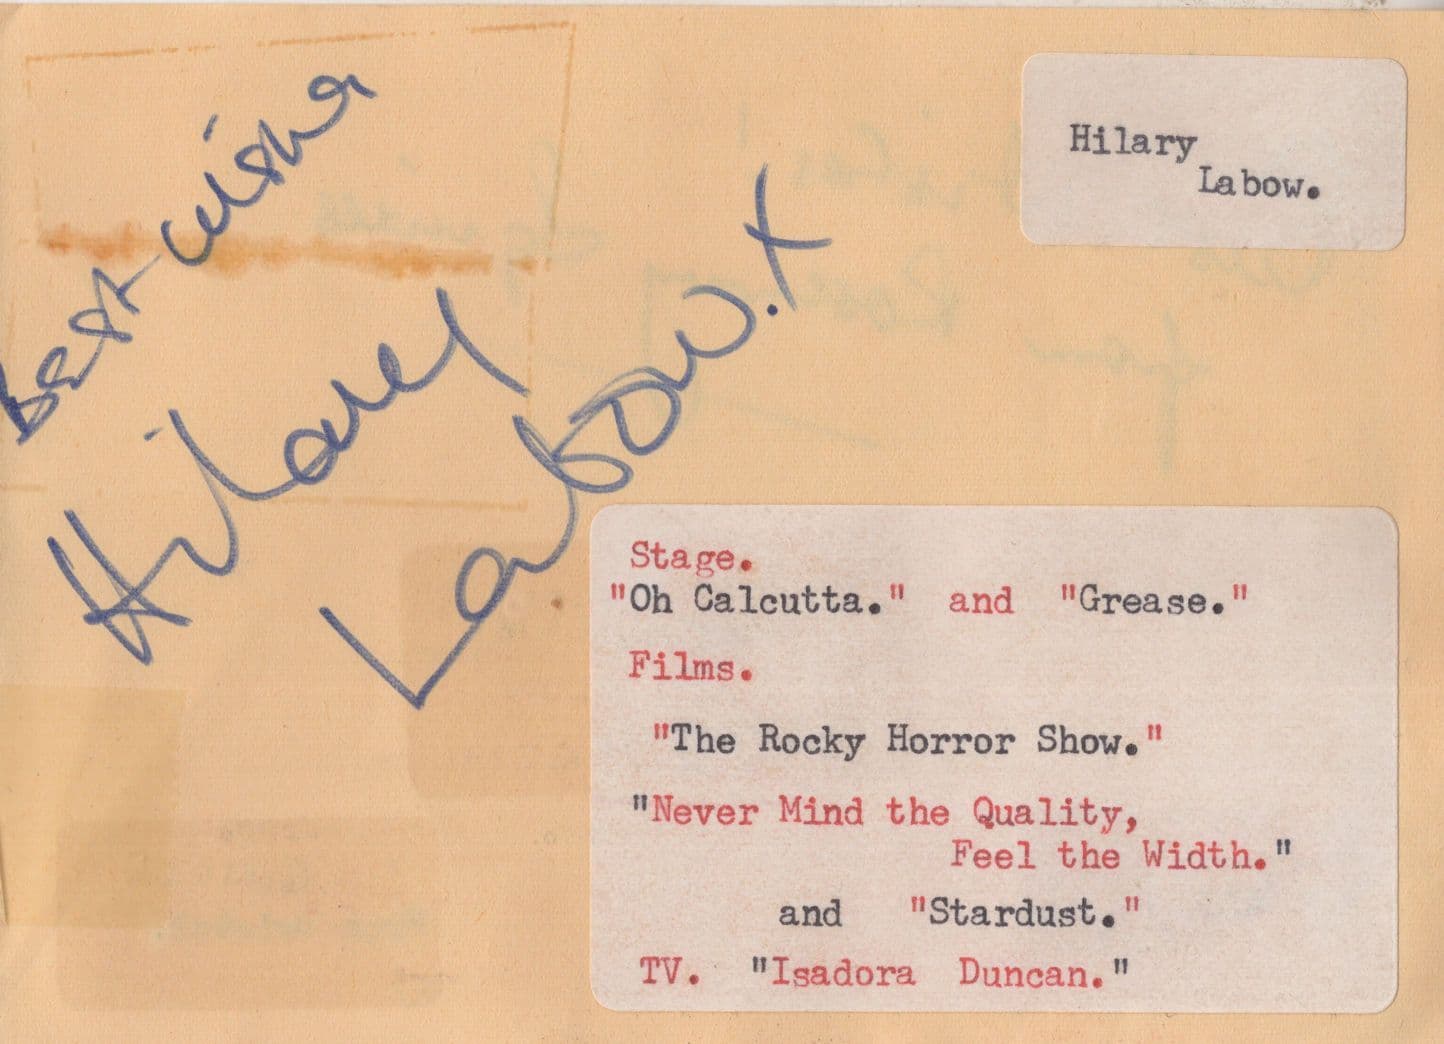 Best wishes
Hilary
Labow. x
Hilary
Labow.
Stage.
"Oh Calcutta." and "Grease."
Films.
"The Rocky Horror Show."
"Never Mind the Quality,
Feel the Width."
and "Stardust."
TV. "Isadora Duncan."